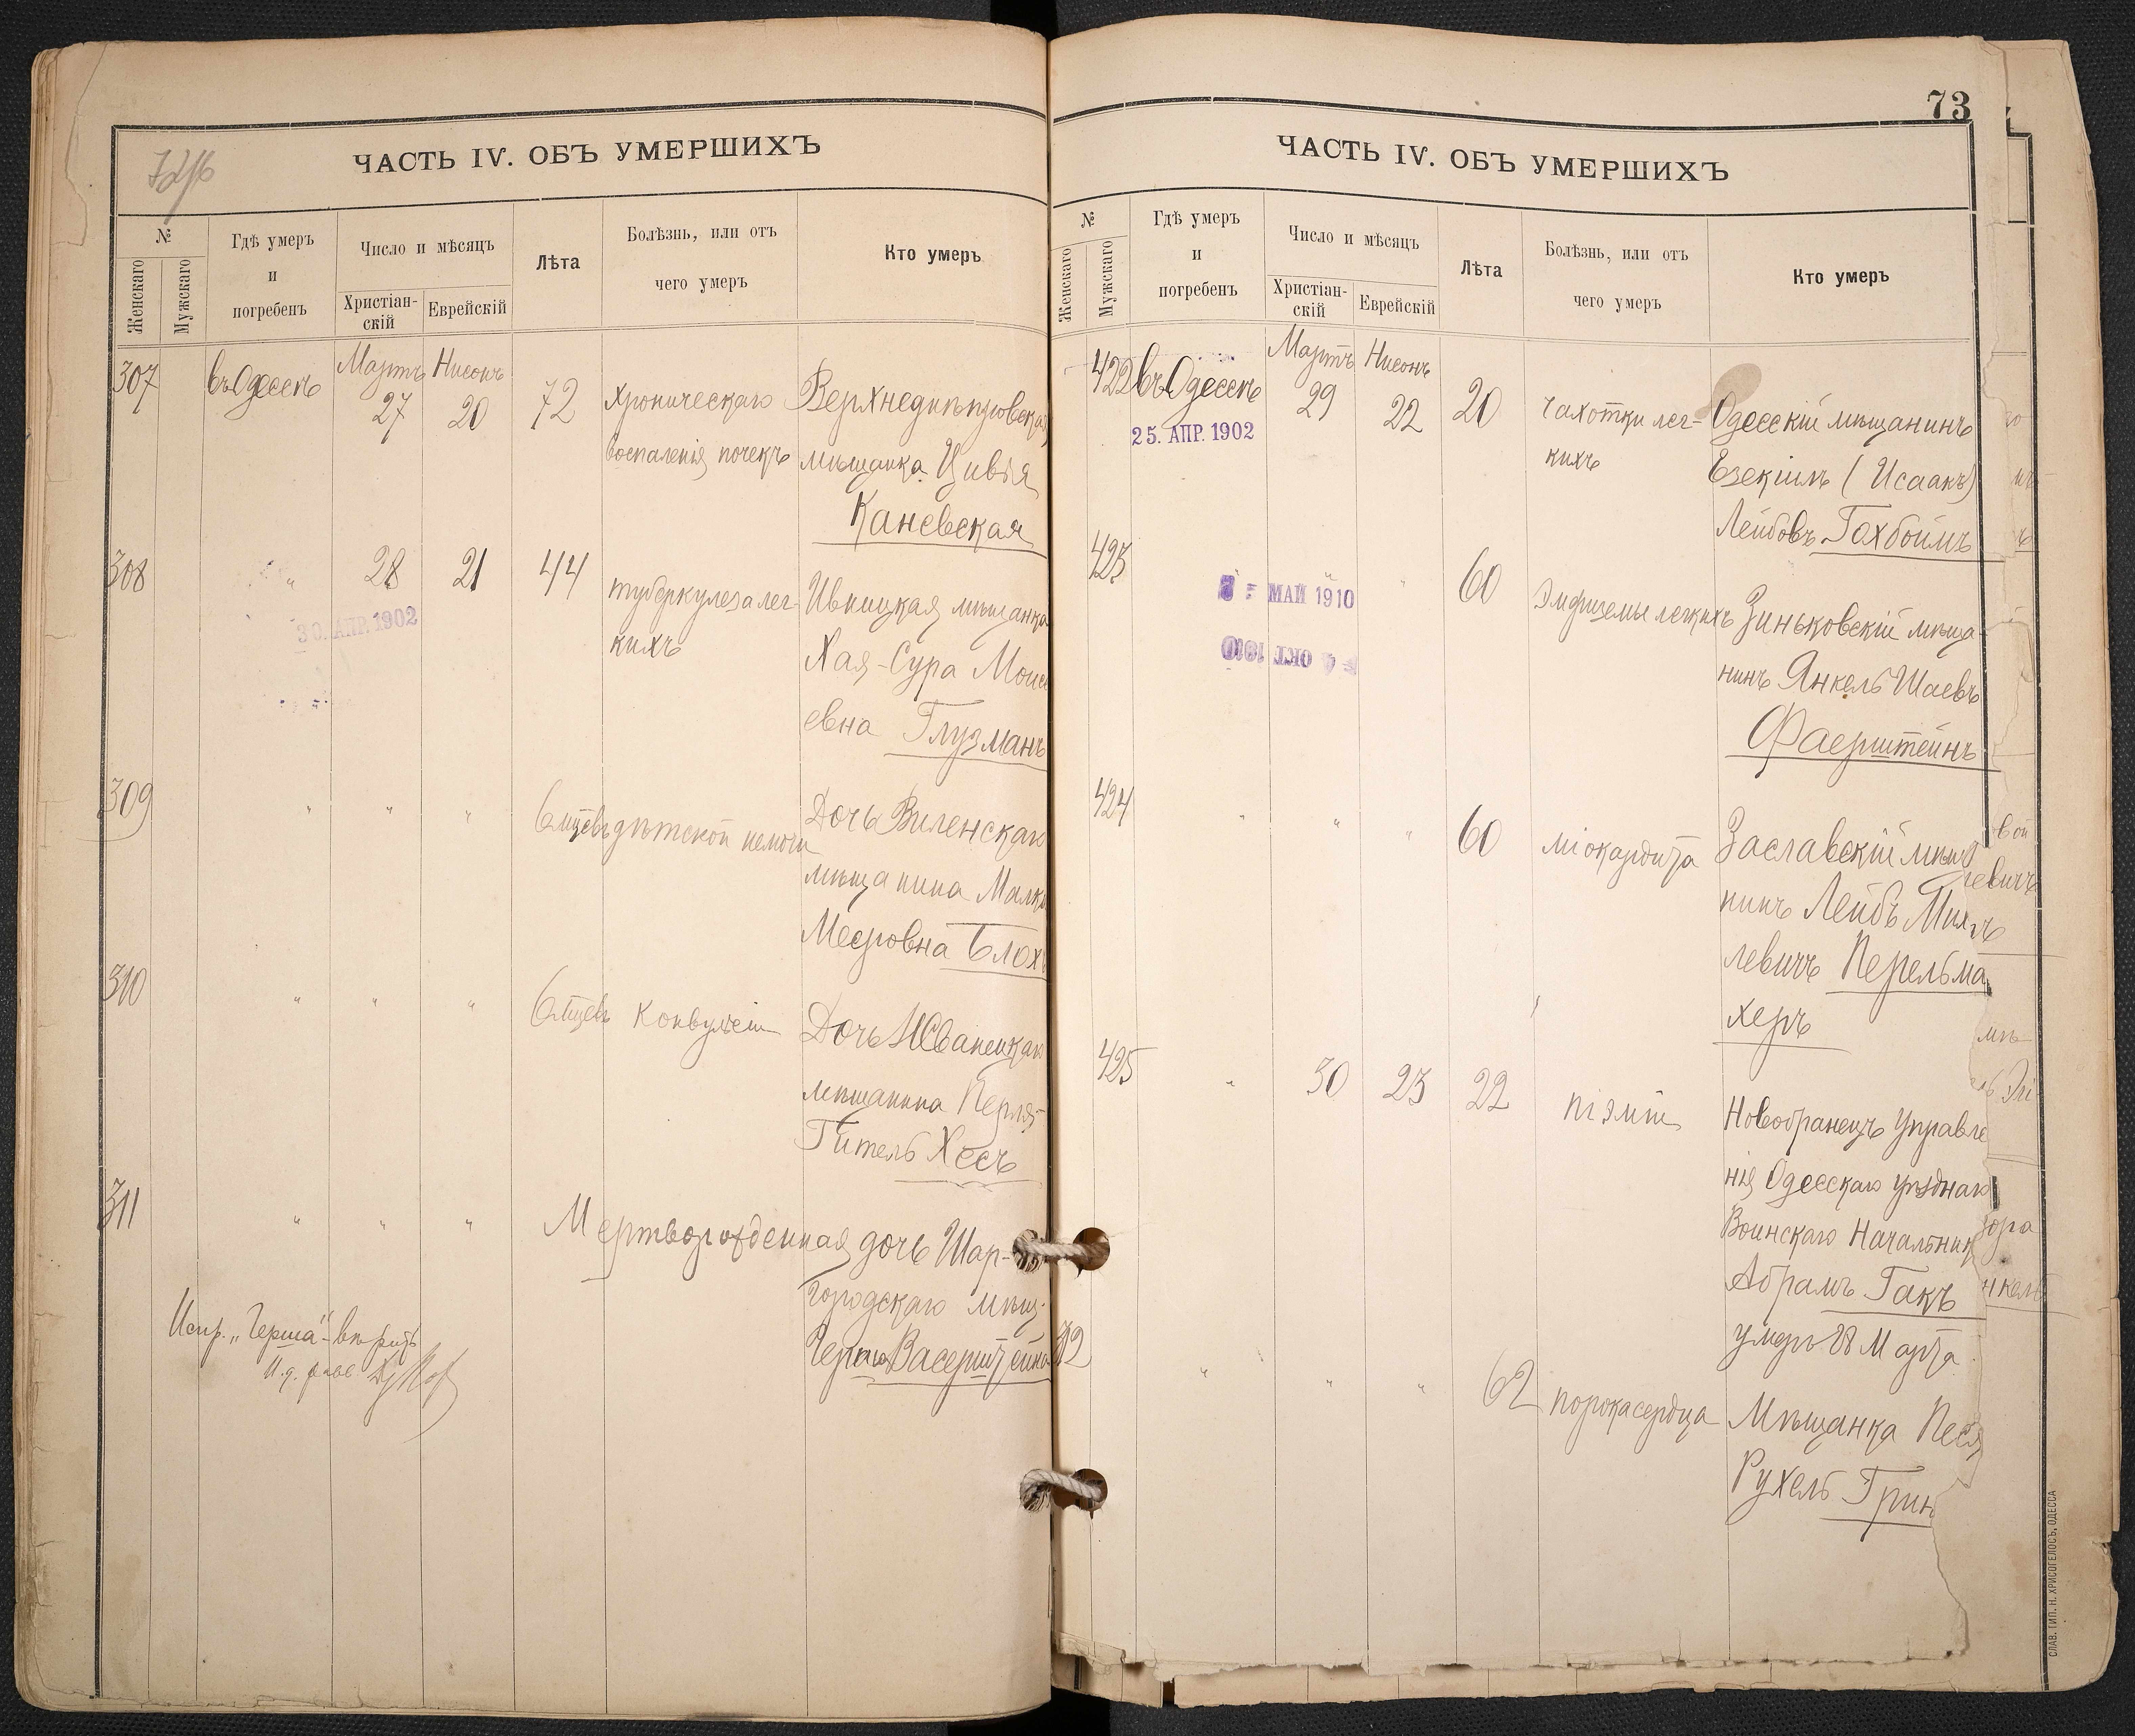 ЧАСТЬ IV. ОБЪ УМЕРШИХЪ
№
Женскаго
Мужскаго
Гдѣ умеръ
и
погребенъ
Число и мѣсяцъ
Христіан-
скій
Еврейскій
Лѣта
Болѣзнь, или отъ
чего умеръ
Кто умеръ
307 въ Одессѣ Мартъ 27 Нисонъ 20 72
хроническаго
воспаленія почекъ
Верхнеднѣпровская
мѣщанка Цивія
Каневская
308 " 28 21 44
30. АПР. 1902
туберкулеза лег-
кихъ
мѣщанка
Хая-Сура Моисе
евна Глузманъ
309 " " " 6 мцевъ дѣтской немочи
Дочь Виленскаго
мѣщанина Малка
Мееровна Блохъ
310 " " " 6 мцевъ конвульсіи
Дочь Жванецкаго
мѣщанина Перля-
Гитель Хесъ
311 " " "
Мертворожденная дочь Шар-
городскаго мѣщ.
Герша Васерштейна
Испр. „Герша" - вѣрить
73
ЧАСТЬ IV. ОБЪ УМЕРШИХЪ
№
Женскаго
Мужскаго
Гдѣ умеръ
и
погребенъ
Число и мѣсяцъ
Христіан-
скій
Еврейскій
Лѣта
Болѣзнь, или отъ
чего умеръ
Кто умеръ
422 въ Одессѣ Мартъ 29 Нисонъ 22 20
25. АПР. 1902
чахотки лег-
кихъ
Одесскій мѣщанинъ
Езекіиль (Исаакъ)
Лейбовъ Гохбоймъ
423 " " 60
МАЙ 1910
4 ОКТ. 1910
Эмфиземы легкихъ
Зиньковскій мѣща-
нинъ Янкель Шаевъ
Фаерштейнъ
424 " " " 60
міокардита
Заславскій мѣщ
нинъ Лейбъ
левичъ Перельма
херъ
425 " 30 23 22
піэміи
Новобранецъ Управле
нія Одесскаго уѣзднаго
Воинскаго Начальник
Абрамъ Гакъ
умеръ 28 Марта
312 " " " 62
порока сердца
Мѣщанка Песя
Рухель Грин
СЛАВ. ТИП. Н. ХРИСОГЕЛОСЪ, ОДЕССА